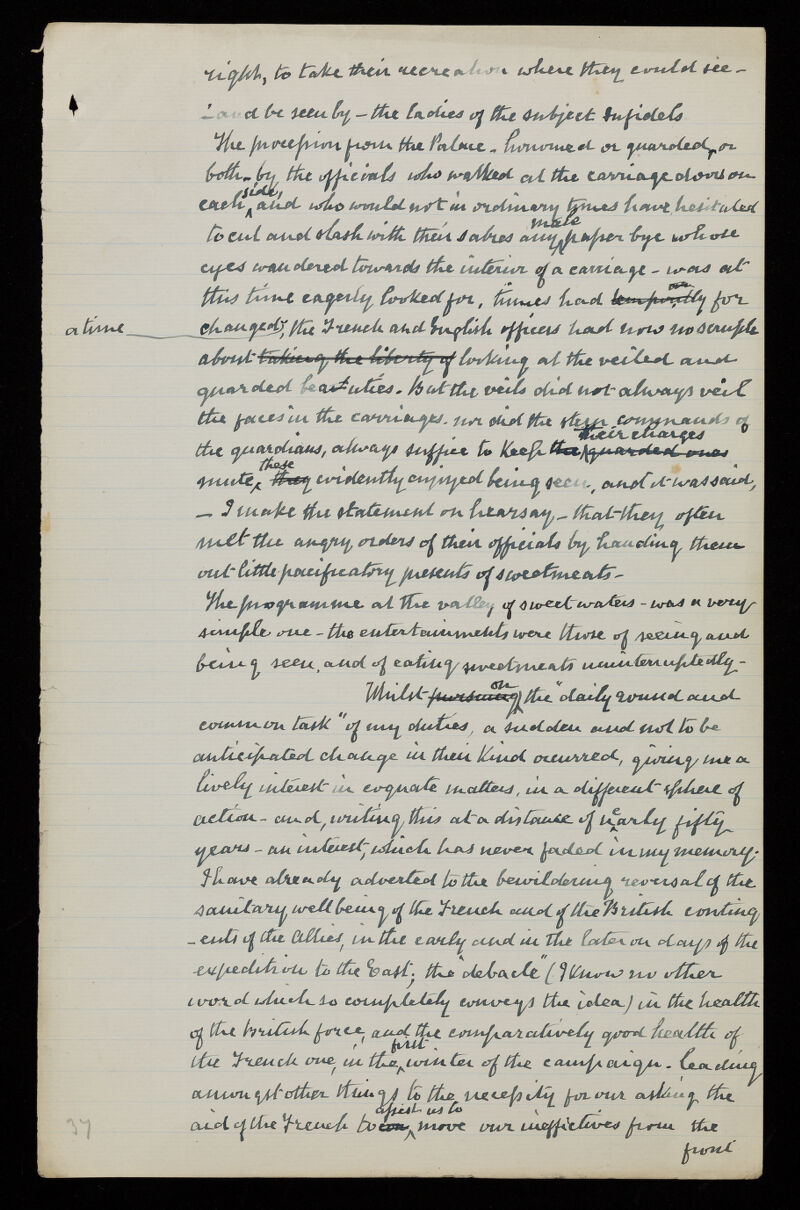 right, to take their recreation where they could see -
and be seen by - the ladies of the subject Infidels
The procession from the Palace - honoured or guarded, or
both - by the officials who walked at the carriage doors on
each side, and who would not in ordinary times have hesitated
to cut and slash with their sabres any male passer bye whose
eyes wandered towards the interior of a carriage - was at
this time eagerly looked for, times had temporarily for
a time changed; the French and English officers had now no scruple
about taking the liberty of looking at the veiled and
guarded beauties. But the veils did not always veil
the faces in the carriages. nor did the stern commands of
the guardians, always suffice to keep the guarded ones their charges
mute, they these evidently enjoyed being seen, and it was said,
- I make the statement on hearsay - that they often
met the angry orders of their officials by handing them
out little pacificatory presents of sweetmeats -
The programme at the valley of sweet waters - was a very
simple one - the entertainments were those of seeing and
being seen, and of eating sweetmeats uninterruptedly -
Whilst pursuing on the "daily round and
common task" of my duties, a sudden and not to be
anticipated change in their kind occurred, giving me a
lively interest in cognate matters, in a different sphere of
action - and, writing this at a distance of nearly fifty
years - an interest, which has never faded in my memory.
I have already adverted to the bewildering reversal of the
sanitary wellbeing of the French and of the British conting
-ents of the Allies, in the early and in the later on days of the
expedition to the East; the "debacle" (I know no other
word which so completely conveys the idea) in the health
of the British force, and the comparatively good health of
the French one, in the first winter of the campaign - leading
amongst other things to the necessity for our asking the
aid of the French to con assist us to move our ineffectives from the
front
37